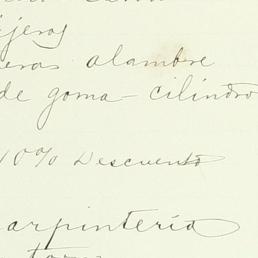 ijeras
eras alambre
de goma - cilindro
10% Descuento
arpinteria